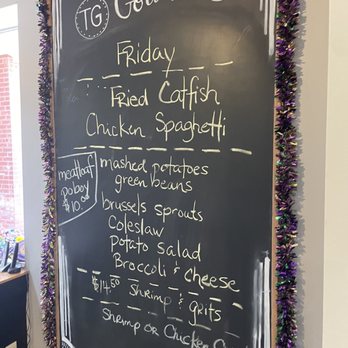 TG
Friday
Fried Catfish
Chicken Spaghetti
meatloaf
poboy
$10.00
mashed potatoes
green beans
brussels sprouts
Coleslaw
Potato Salad
Broccoli & cheese
$14.50 Shrimp & grits
Shrimp or Chicken